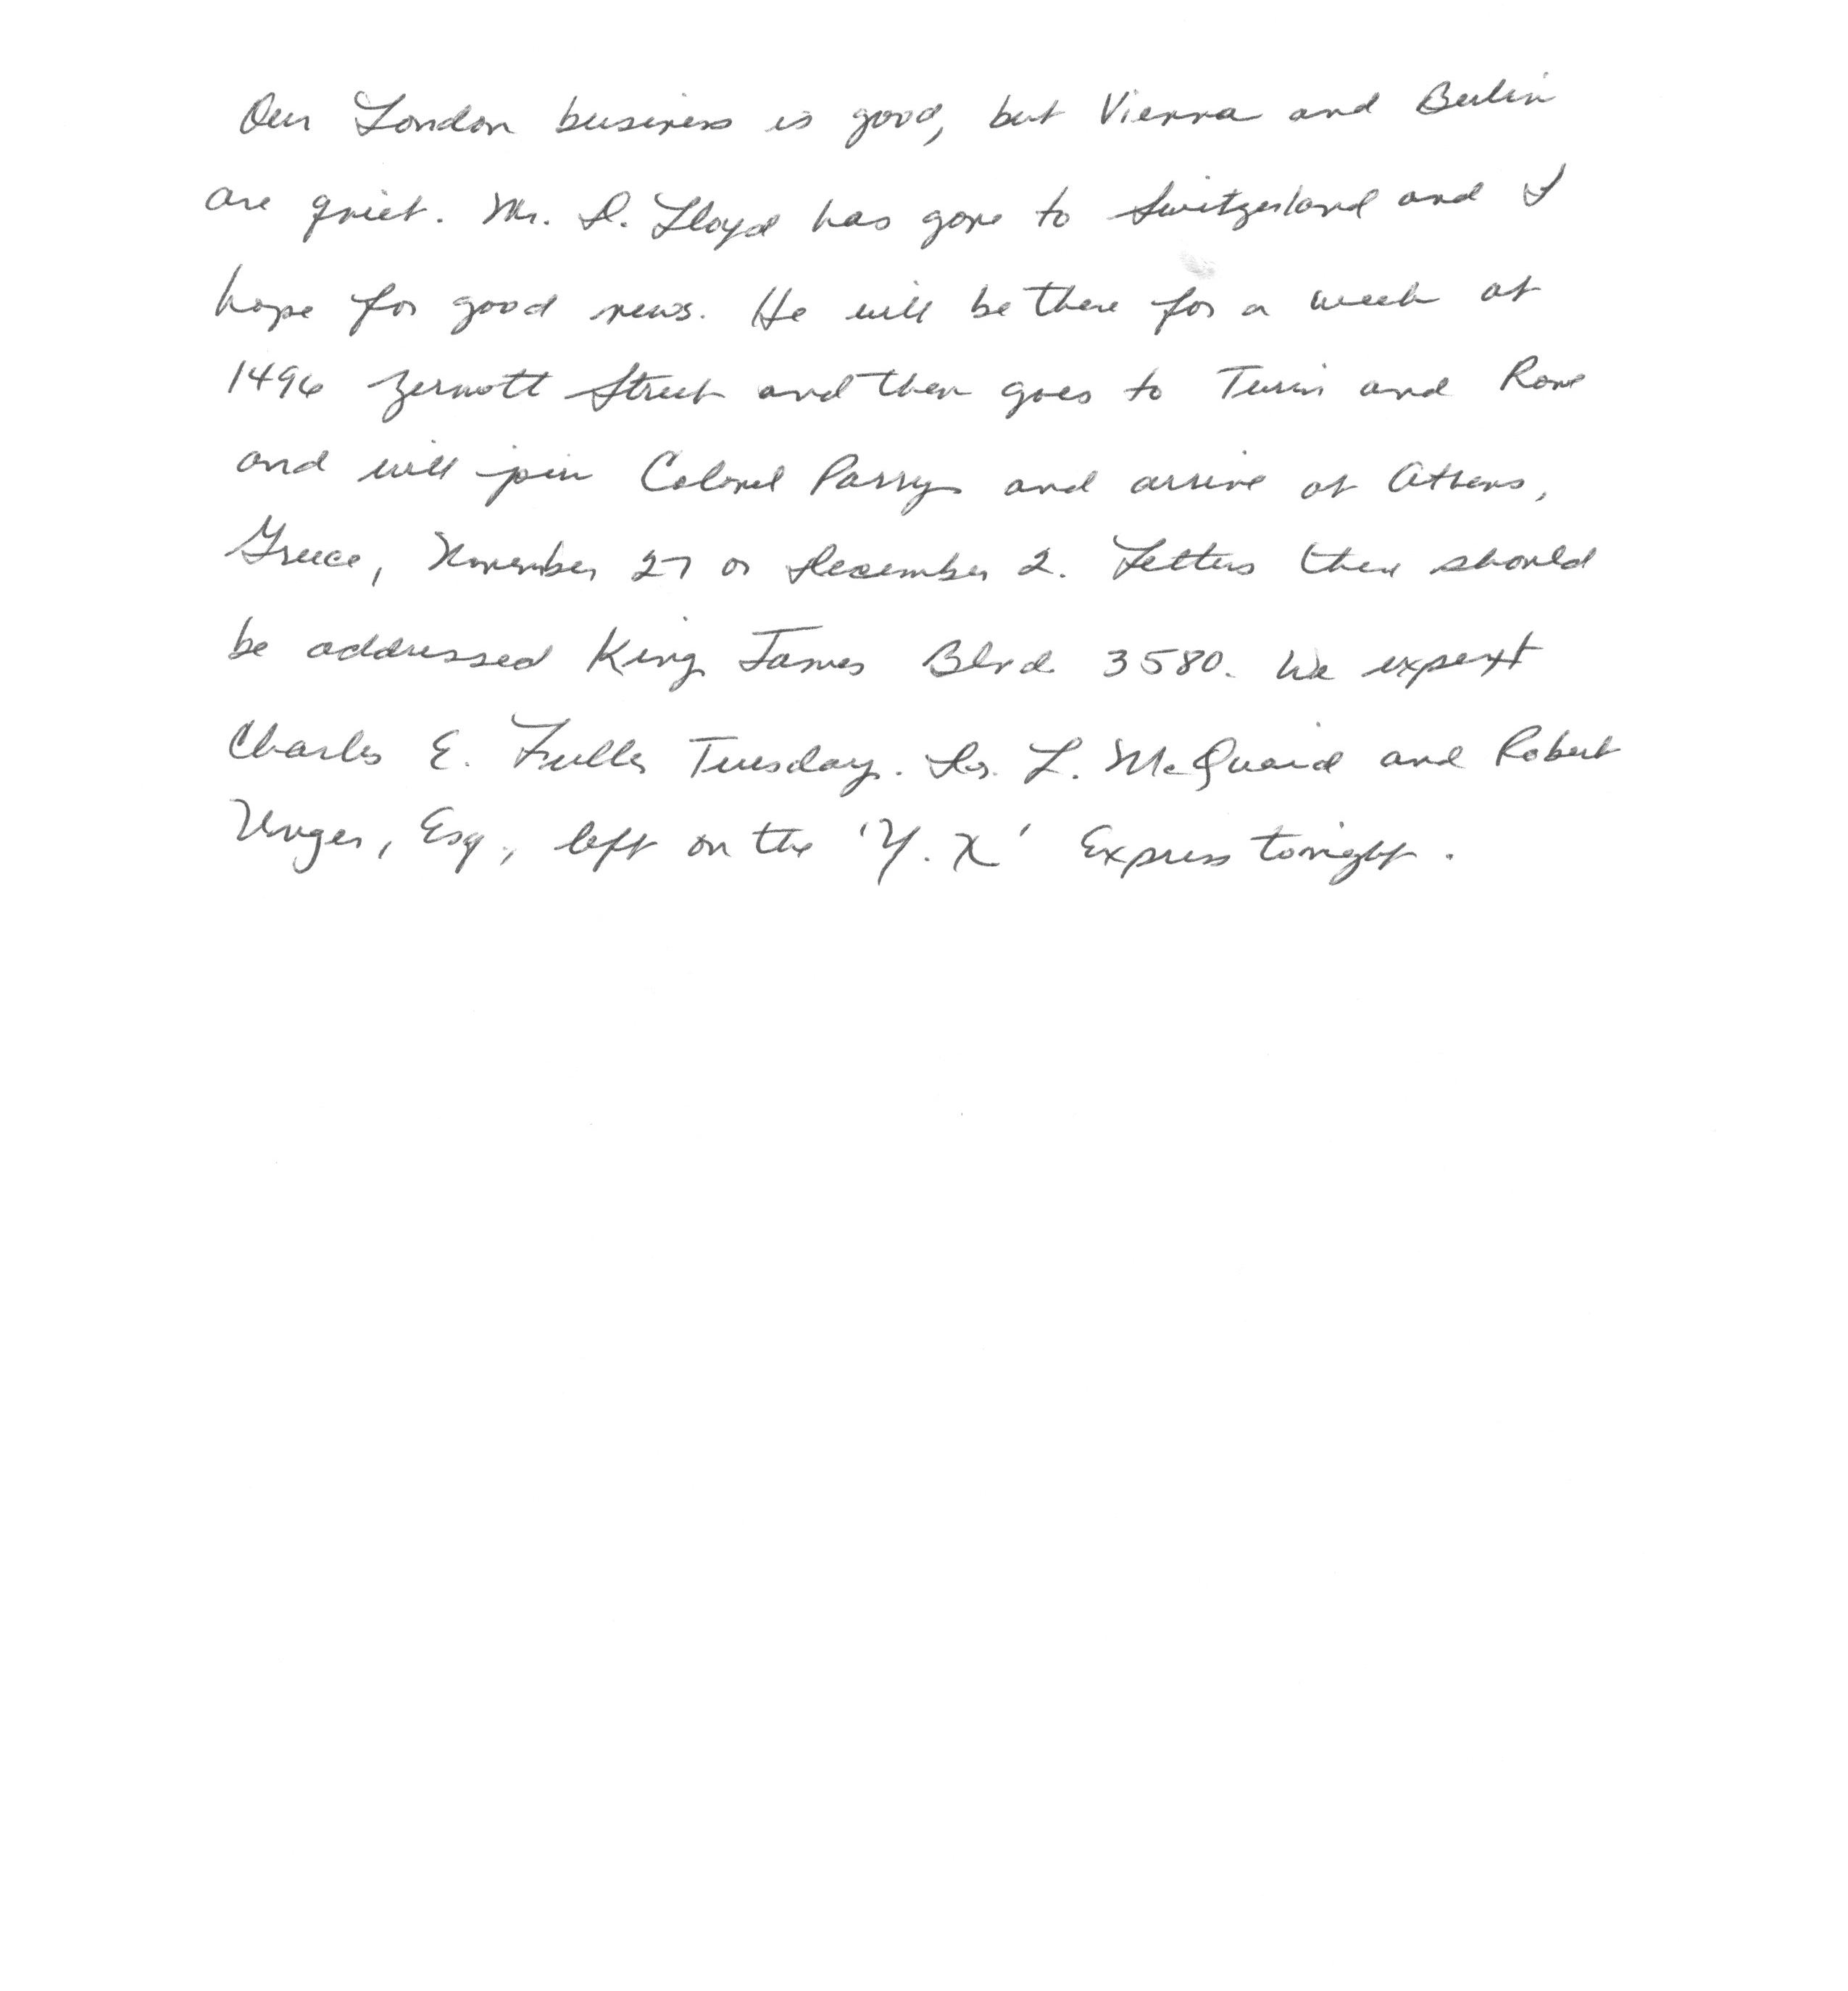 Our London business is good, but Vienna and Berlin
are quiet. Mr. D. Lloyd has gone to Switzerland and I
hope for good news. He will be there for a week at
1496 Zermott Street and then goes to Turin and Rome
and will join Colonel Parry and arrive at Athens,
Greece, November 27 or December 2. Letters there should
be addressed King James Blvd 3580. We expect
Charles E. Fuller Tuesday. Dr. L. McQuaid and Robert
Unger, Esq., left on the 'Y. X' Express tonight.